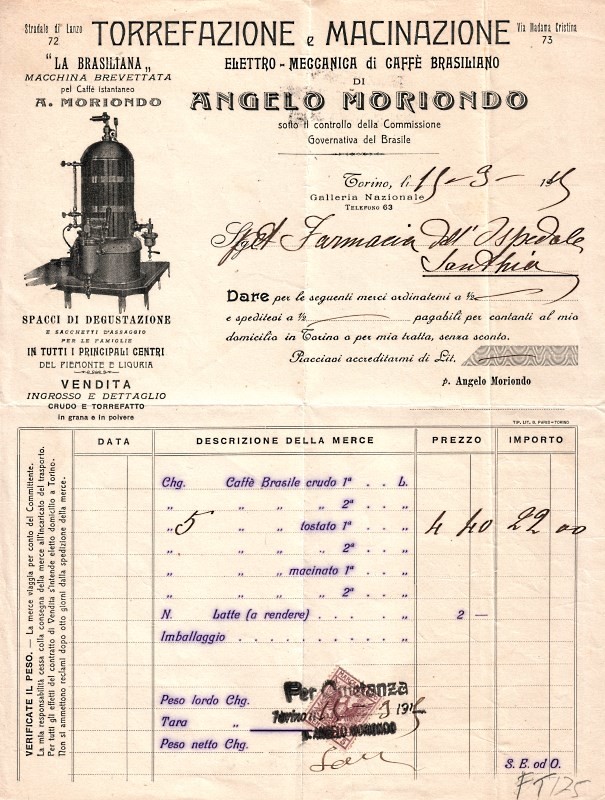 Stradale di Lanzo
72
TORREFAZIONE e MACINAZIONE
Via Madama Cristina
73
"LA BRASILIANA„
MACCHINA BREVETTATA
pel Caffè istantaneo
A. MORIONDO
ELETTRO-MECCANICA di CAFFÈ BRASILIANO
DI
ANGELO MORIONDO
sotto il controllo della Commissione
Governativa del Brasile
Torino, li 15-3-1915
Galleria Nazionale
TELEFONO 63
Farmacia dell'Ospedale
Santhia
Dare per le seguenti merci ordinatemi a ½
e speditesi a ½ pagabili per contanti al mio
domicilio in Torino o per mia tratta, senza sconto.
Piacciavi accreditarmi di Lit.
p. Angelo Moriondo
SPACCI DI DEGUSTAZIONE
E SACCHETTI D'ASSAGGIO
PER LE FAMIGLIE
IN TUTTI I PRINCIPALI CENTRI
DEL PIEMONTE E LIGURIA
VENDITA
INGROSSO E DETTAGLIO
CRUDO E TORREFATTO
in grana e in polvere
VERIFICATE IL PESO. — La merce viaggia per conto del Committente.
La mia responsabilità cessa colla consegna della merce all'incaricato del trasporto.
Per tutti gli effetti del contratto di Vendita s'intende eletto domicilio a Torino.
Non si ammettono reclami dopo otto giorni dalla spedizione della merce.
DATA DESCRIZIONE DELLA MERCE PREZZO IMPORTO
Chg. Caffè Brasile crudo 1ª . . L.
„ „ „ „ 2ª . . „
„ 5 „ „ tostato 1ª . . „ 4 40 22 00
„ „ „ „ 2ª . . „
„ „ „ macinato 1ª . . „
„ „ „ „ 2ª . . „
N. Latte (a rendere) . . . . „ 2 —
Imballaggio . . . . . . . . „
Peso lordo Chg.
Tara „
Peso netto Chg.
Per Quietanza
Torino li 15-3 1915
p. ANGELO MORIONDO
S. E. od O.
FT125